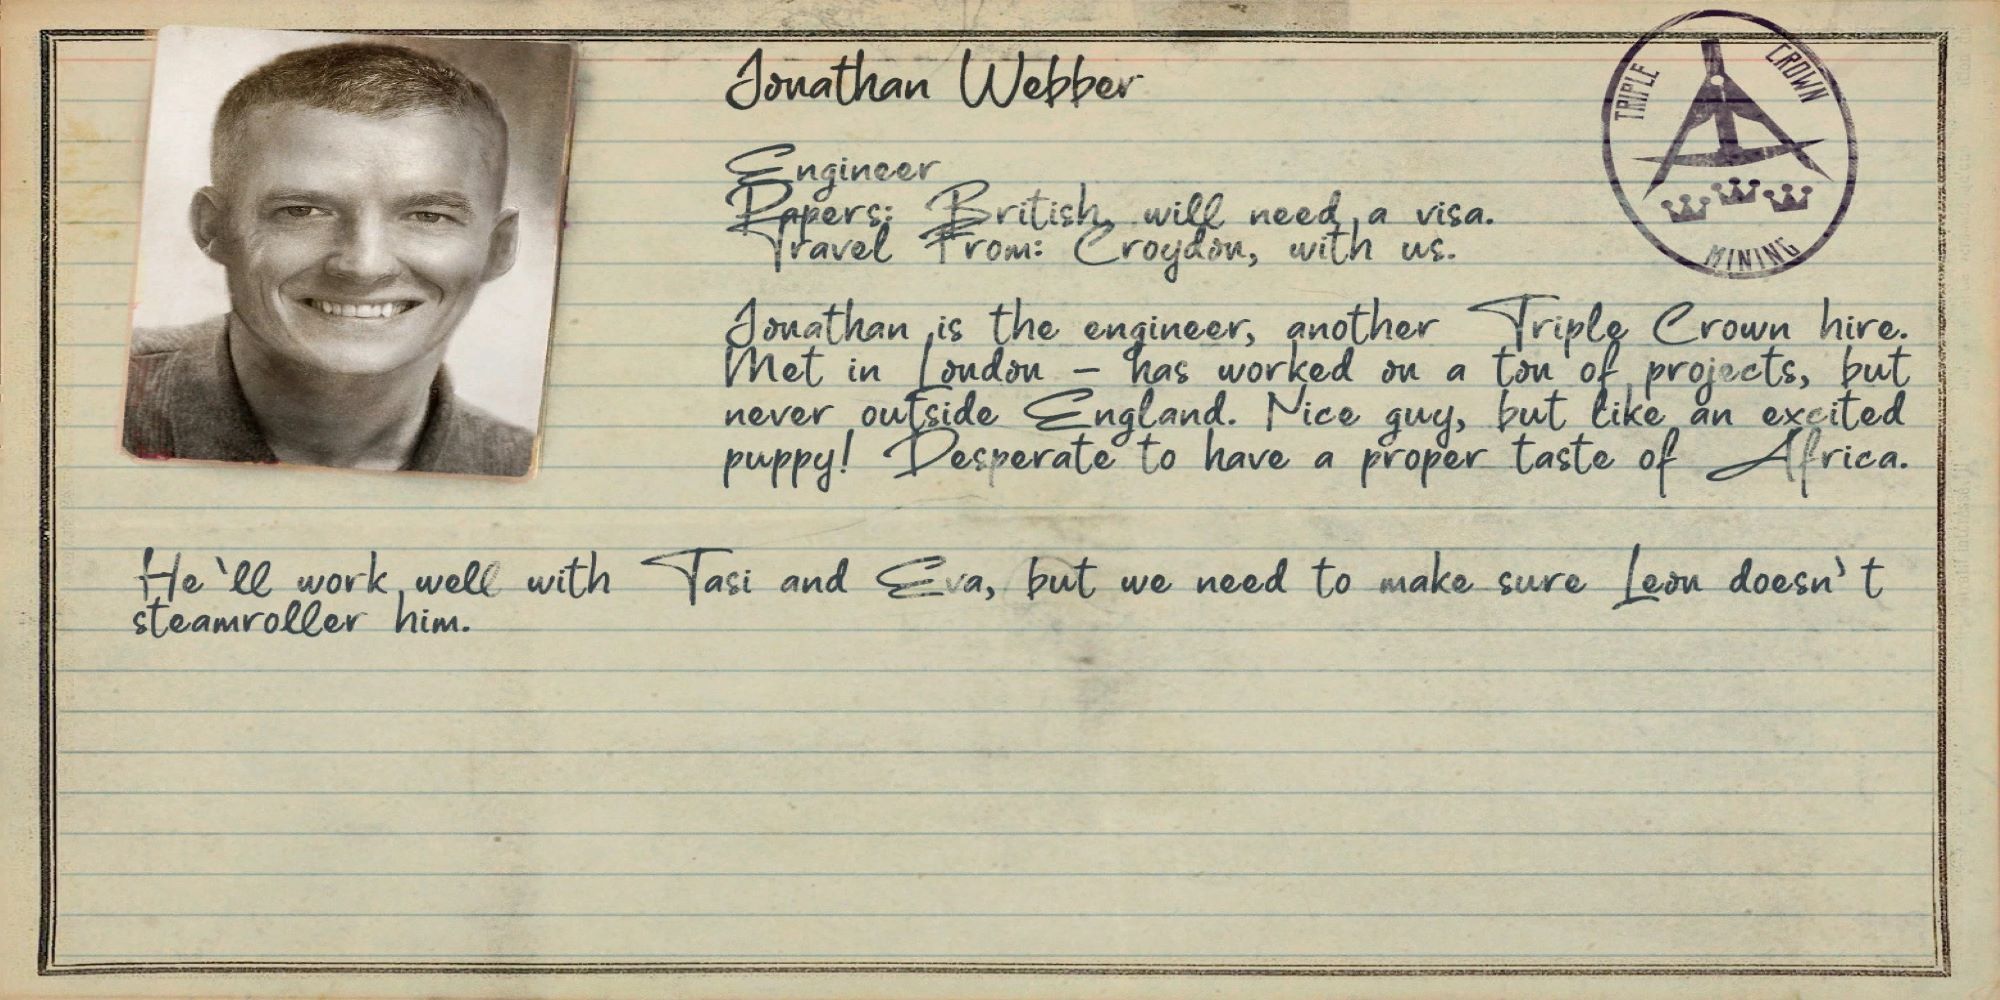 Jonathan Webber
TRIPLE CROWN MINING
Engineer
Papers: British, will need a visa.
Travel From: Croydon, with us.
Jonathan is the engineer, another Triple Crown hire.
Met in London – has worked on a ton of projects, but
never outside England. Nice guy, but like an excited
puppy! Desperate to have a proper taste of Africa.
He`ll work well with Tasi and Eva, but we need to make sure Leon doesn`t
steamroller him.